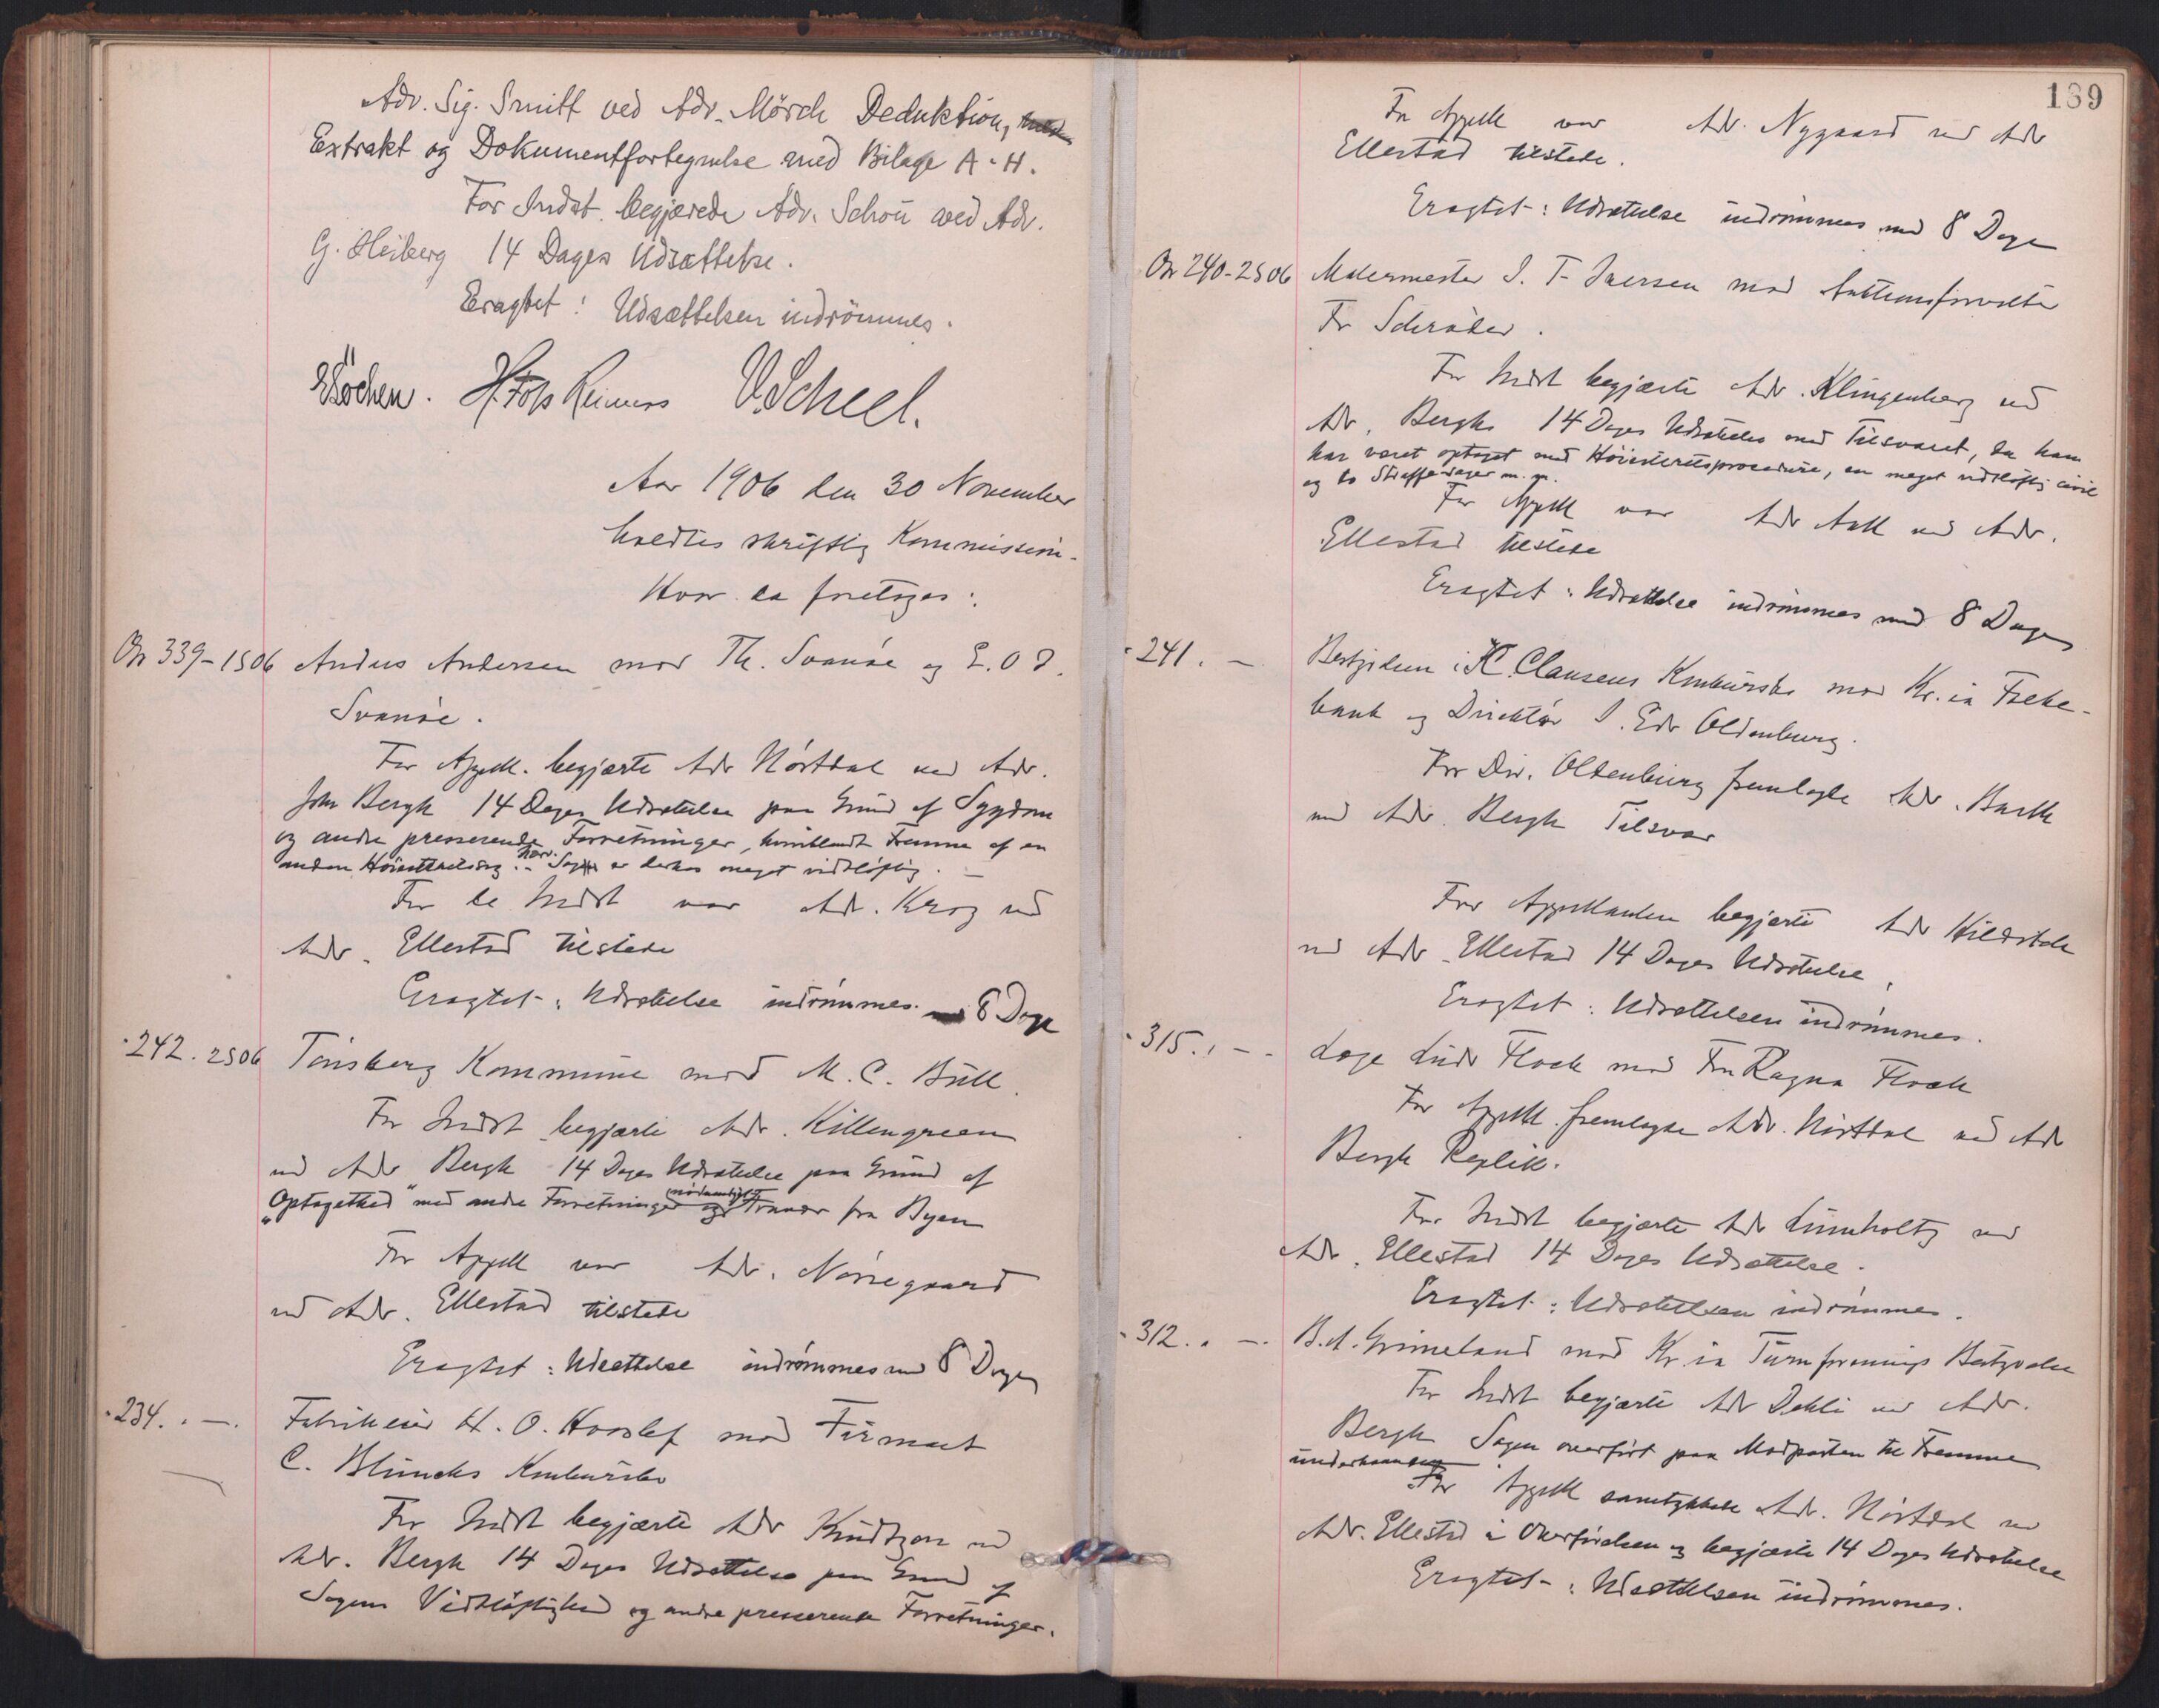 Adv. Sig. Smitt ved Adv. Mörch Deduktion,
Extrakt og Dokumentfortegnelse med Bilage A-H.
For Indst. begjærede Adv. Schou ved Adv.
G. Heiberg 14 Dages Udsættelse.
Eragtet: Udsættelsen indrömmes.
Löchen. H. Foss Reimers V. Scheel.
Aar 1906 den 30 November
holdtes skriftlig Kommission.
Hvor da foretoges:
No 339-1S06 Andreas Andersen mod Th. Svanöe og E. O. D.
Svanöe.
For Appell. begjærte Adv Hörtdal ved Adv.
John Bergh 14 Dages Udsættelse paa Grund af Sygdom
og andre presserende Forretninger, hvoriblandt Fremme af en
anden Höiesteretssag. - nærv. Sag er derhos meget vidtlöftig. -
For de Indst var Adv. Krag ved
Adv. Ellestad tilstede
Eragtet: Udsættelse indrömmes med 8 Dage
- 242. 2S06 Tönsberg Kommune mod M. C. Bull.
For Indst begjærte Adv. Killengreen
ved Adv Bergh 14 Dages Udsættelse paa Grund af
"Optagethed" med andre Forretninger og nödvendigt Fravær fra Byen
For Appell var Adv. Nörregaard
ved Adv. Ellestad tilstede
Eragtet: Udsættelse indrömmes med 8 Dage
- 234. . -. Fabrikeier H. O. Hovslef mod Firmaet
C. Blunchs Konkursbo
For Indst begjærte Adv Knudtzon ved
Adv. Bergh 14 Dages Udsættelse paa Grund af
Sagens Vidtlöftighed og andre presserende Forretninger.
189
For Appell var Adv. Nygaard ved Adv
Ellestad tilstede.
Eragtet: Udsættelse indrömmes med 8 Dage
No 240-2S06 Malermester I. T. Iversen mod Auktionsforvalter
Fr Schröder.
For Indst begjærte Adv. Klingenberg ved
Adv. Bergh 14 Dages Udsættelse med Tilsvaret, da han
har været optaget med Höiesteretsprocedure, en meget vidtlöftig civil
og to Straffesager m. m.
For Appell var Adv Aall ved Adv.
Ellestad tilstede
Eragtet: Udsættelse indrömmes med 8 Dage
- 241. - Bestyrelsen i H. C. Clausens Konkursbo mod Kr.ia Folke-
bank og Direktör I. Edv Oldenburg.
For Dir. Oldenburg fremlagte Adv. Barth
ved Adv. Bergh Tilsvar
For Appellanten begjærte Adv
ved Adv. Ellestad 14 Dages Udsættelse.
Eragtet: Udsættelsen indrömmes.
- 315. . -. Læge Ludv Flock mod Fru Ragna Flock
For Appell. fremlagde Adv. Hörtdal ved Adv
Bergh Replik.
For Indst begjærte Adv Lumholtz ved
Adv. Ellestad 14 Dages Udsættelse.
Eragtet: Udsættelsen indrömmes.
- 312. . -. B. A. Grimeland mod Kr.ia Turnforenings Bestyrelse
For Indst begjærte Adv Dehli ved Adv.
Bergh Sagen overfört paa Modparten til Fremme
underhaanden
For Appell samtykkede Adv. Hörtdal ved
Adv. Ellestad i Overförelsen og begjærte 14 Dages Udsættelse
Eragtet: Udsættelsen indrömmes.